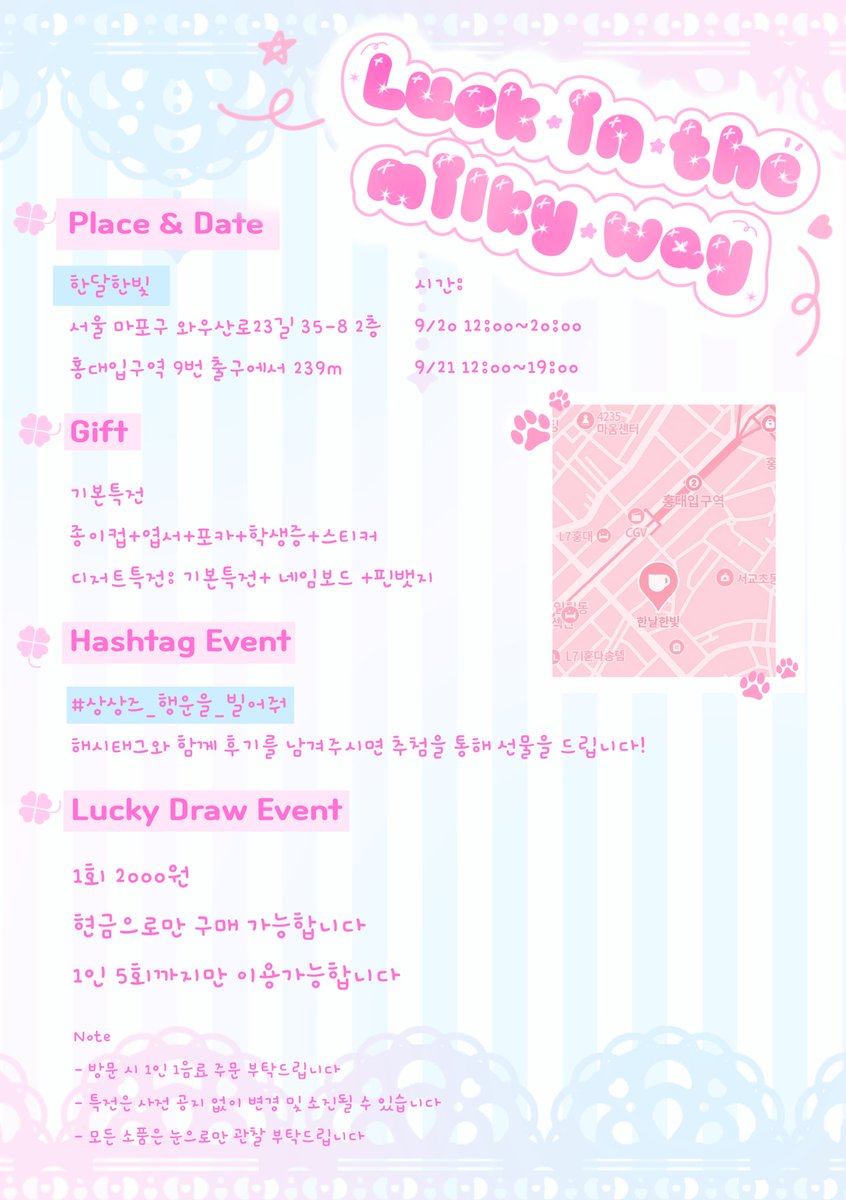 Luck in the
milky way
Place & Date
한달한빛
서울 마포구 와우산로23길 35-8 2층
홍대입구역 9번 출구에서 239m
시간:
9/20 12:00~20:00
9/21 12:00~19:00
4235
마음센터
홍대입구역
CGV
L7홍대
서교초등
한날한빛
L7 홍대
Gift
기본특전
종이컵+엽서+포카+학생증+스티커
디저트특전: 기본특전+ 네임보드 +핀뱃지
Hashtag Event
#상상즈_행운을_빌어줘
해시태그와 함께 후기를 남겨주시면 추첨을 통해 선물을 드립니다!
Lucky Draw Event
1회 2000원
현금으로만 구매 가능합니다
1인 5회까지만 이용가능합니다
Note
- 방문 시 1인 1음료 주문 부탁드립니다
- 특전은 사전 공지 없이 변경 및 소진될 수 있습니다
- 모든 소품은 눈으로만 관찰 부탁드립니다